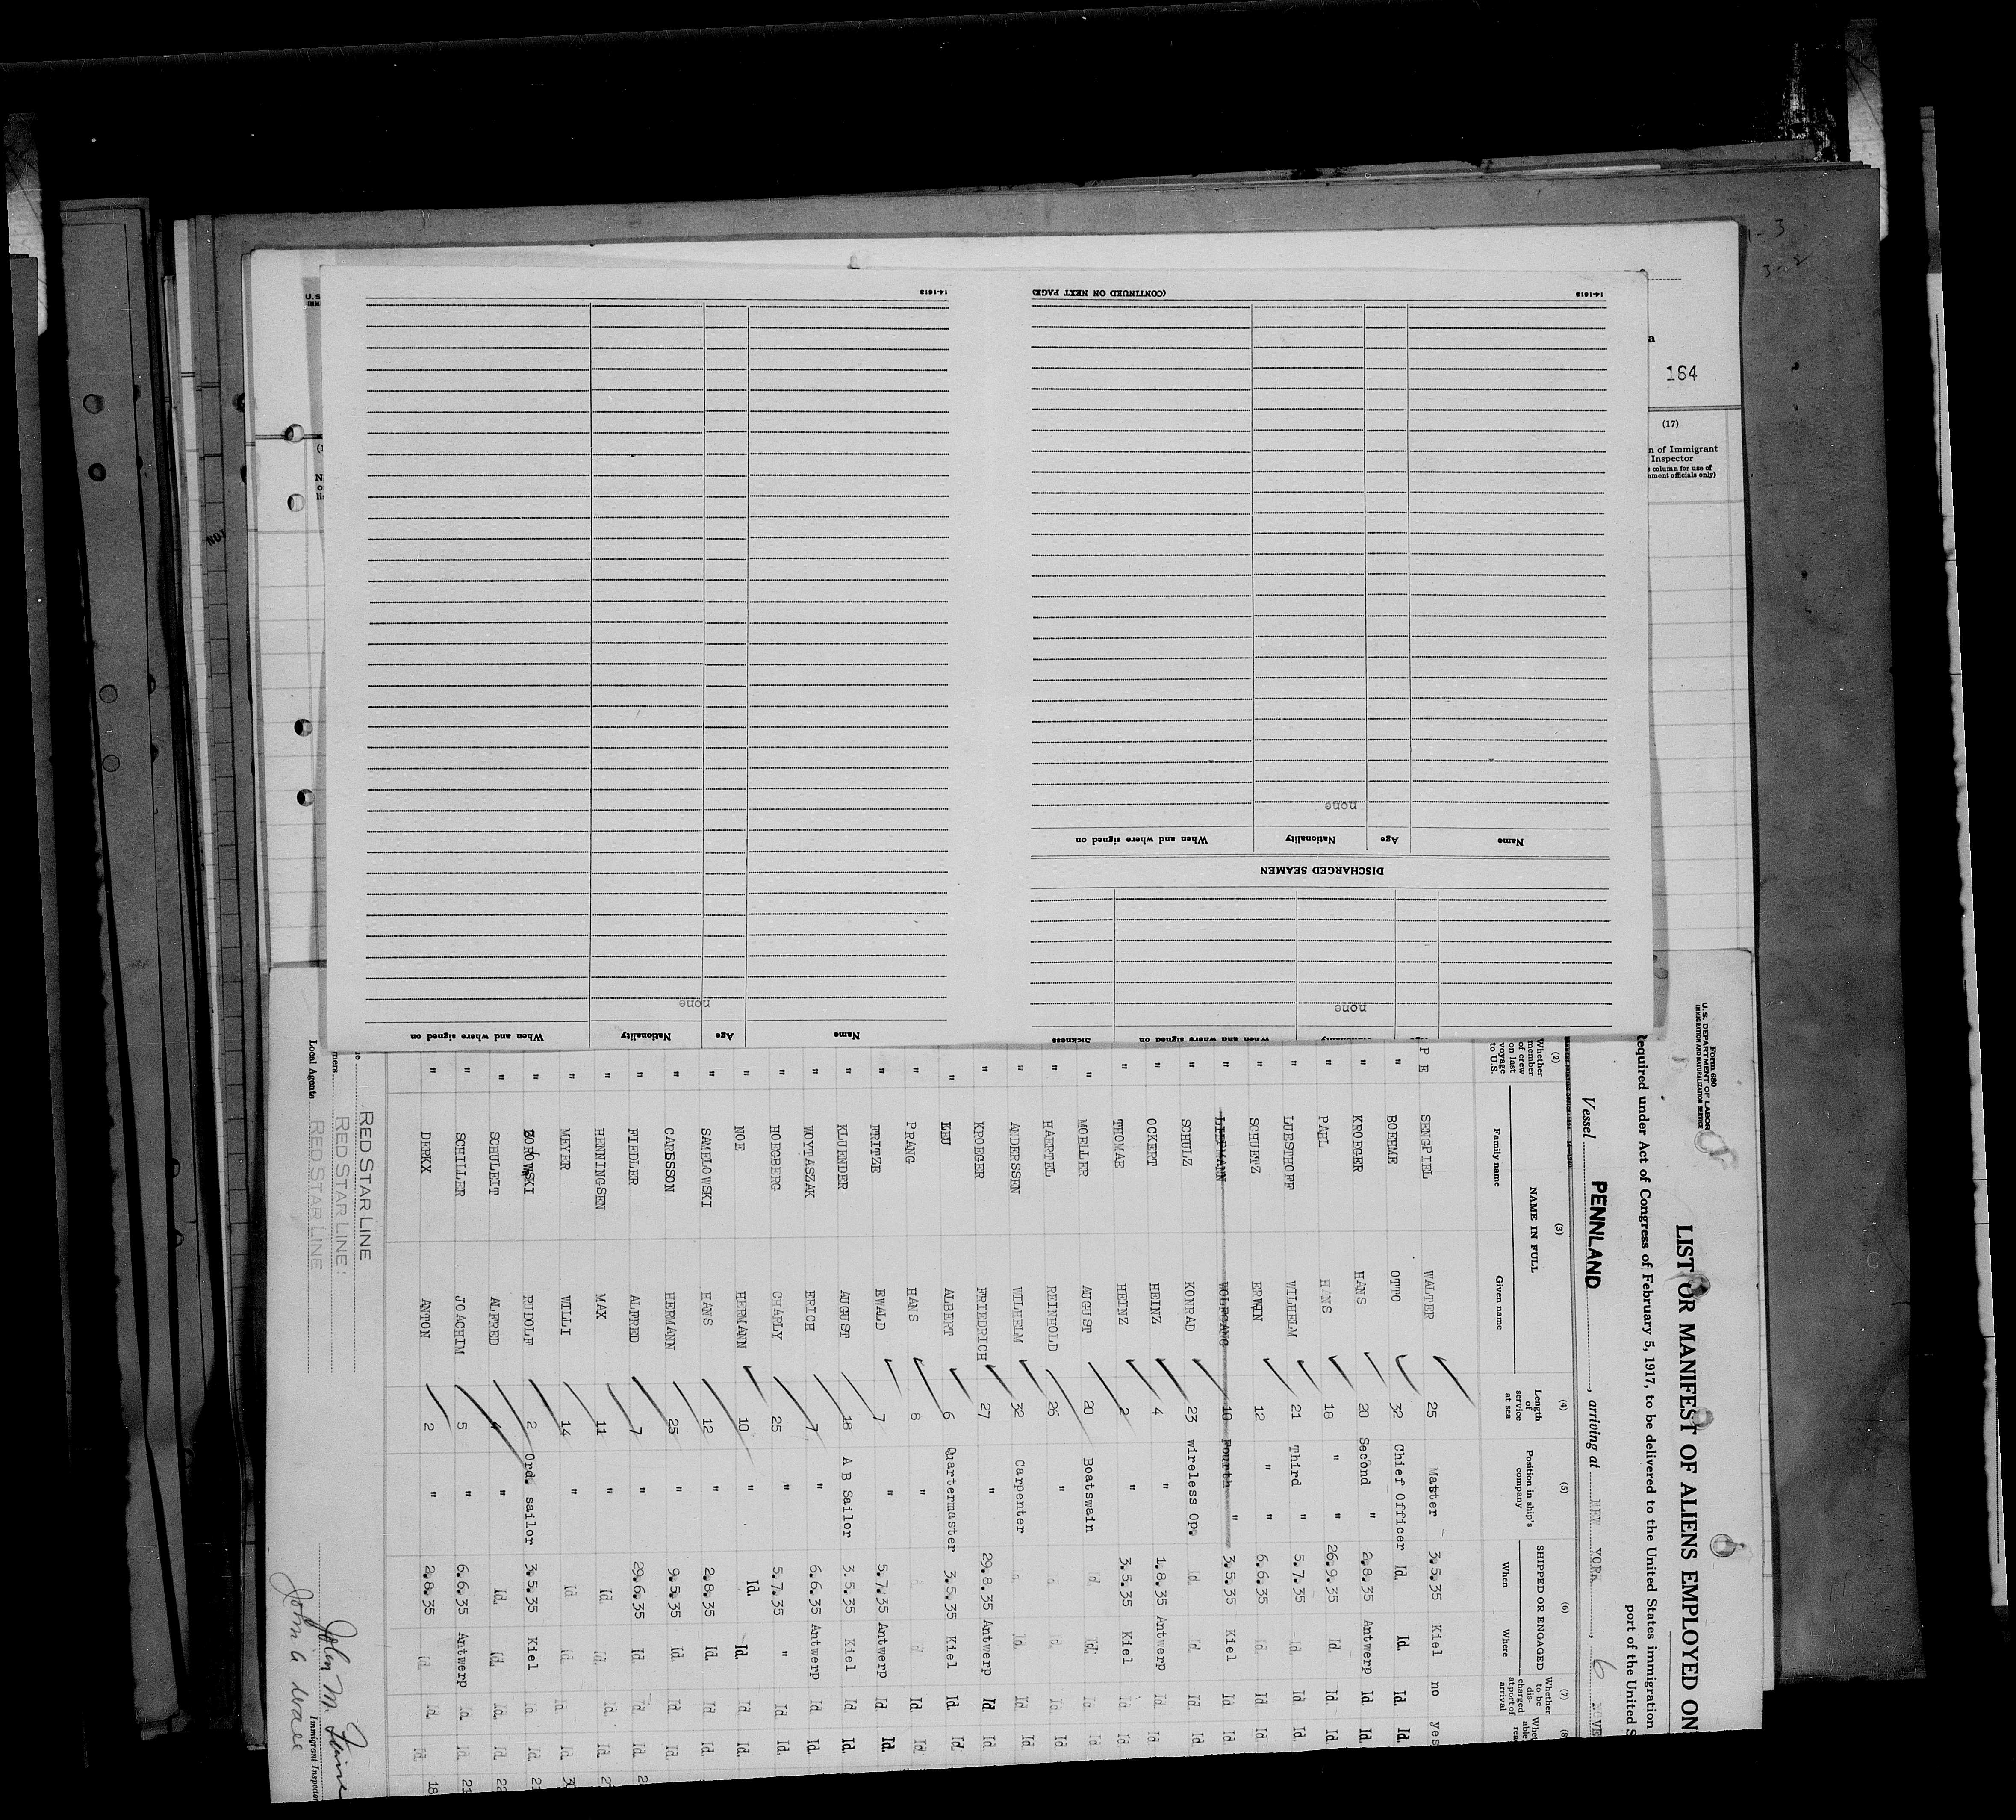 1-3
3-2
a
164
(17)
n of Immigrant
Inspector
s column for use of
nment officials only)
U.S
IMM
14-1613
(CONTINUED ON NEXT PAGE)
14-1613
none
Name
Age
Nationality
When and where signed on
DISCHARGED SEAMEN
none
Sickness
When and where signed on
Nationality
none
Name
Age
Nationality
When and where signed on
Form 680
U.S. DEPARTMENT OF LABOR
IMMIGRATION AND NATURALIZATION SERVICE
LIST OR MANIFEST OF ALIENS EMPLOYED ON
Required under Act of Congress of February 5, 1917, to be delivered to the United States immigration
port of the United S
Vessel PENNLAND, arriving at NEW YORK, 6 NOVE
(2) (3) (4) (5) (6) (7) (8)
Whether member of crew on last voyage to U.S.
NAME IN FULL
Family name Given name
Length of service at sea
Position in ship's company
SHIPPED OR ENGAGED
When Where
Whether to be discharged at port of arrival
Whet able rea
P E SENGPIEL WALTER 25 Master 3.5.35 Kiel no yes
" BOEHME OTTO 32 Chief Officer Id. Id. Id. Id.
" KROEGER HANS 20 Second " 2.8.35 Antwerp Id. Id.
" PAHL HANS 18 " " 26.9.35 Id. Id. Id.
" LUESTHOFF WILHELM 21 Third " 5.7.35 Id. Id. Id.
" SCHUETZ ERWIN 12 " " 6.6.35 Id. Id Id.
" LIEPMANN WOLFGANG 10 Fourth " 3.5.35 Kiel Id Id.
" SCHULZ KONRAD 23 wireless Op. Id. Id. Id Id.
" OCKERT HEINZ 4 " 1.8.35 Antwerp Id. Id.
" THOMAE HEINZ 2 " 3.5.35 Kiel Id Id.
" MOELLER AUGUST 20 Boatswain Id. Id. Id Id
" HAERTEL REINHOLD 26 " Id. Id. Id Id.
" ANDERSSEN WILHELM 32 Carpenter Id. Id Id.
" KROEGER FRIEDRICH 27 " 29.8.35 Antwerp Id. Id.
" LEU ALBERT 6 Quartermaster 3.5.35 Kiel Id. Id.
" PRANG HANS 8 " Id. Id.
" FRITZE EWALD 7 " 5.7.35 Antwerp Id. Id.
" KLUENDER AUGUST 18 A B Sailor 3.5.35 Kiel Id. Id.
" WOYTASZAK ERICH 7 " 6.6.35 Antwerp Id. Id.
" HOEGBERG CHARLY 25 " 5.7.35 " Id. Id.
" NOE HERMANN 10 " Id. Id. Id. Id.
" SAMELOWSKI HANS 12 " 2.8.35 Id. Id. Id.
" CARESSON HERMANN 25 " 9.5.35 Id. Id Id.
" FIEDLER ALFRED 7 " 29.6.35 Id. Id Id. 2
" HENNINGSEN MAX 11 " Id. Id. Id. Id.
" MEYER WILLI 14 " Id Id Id Id.
" BOROWSKI RUDOLF 2 Ord. sailor 3.5.35 Kiel Id Id. 21
" SCHULEIT ALFRED 4 " Id. Id. Id. Id. 22
" SCHILLER JOACHIM 5 " 6.6.35 Antwerp Id. Id. 21
" DERKX ANTON 2 " 2.8.35 Id Id. Id. 18
RED STAR LINE
RED STAR LINE
Local Agents RED STAR LINE
Immigrant Inspector